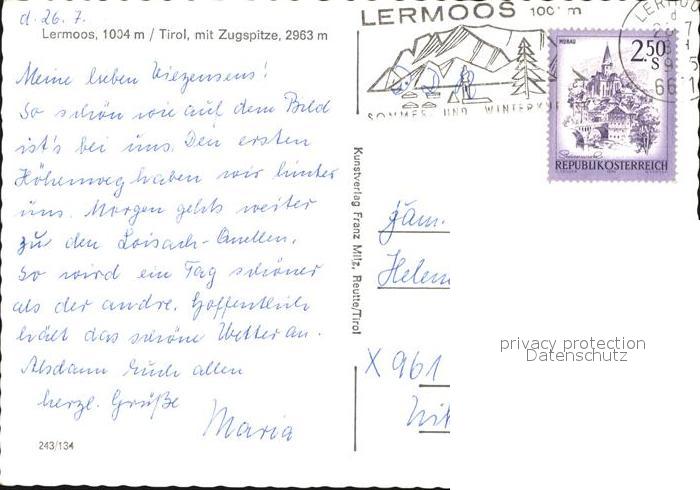 d. 26. 7.
Lermoos, 1004 m / Tirol, mit Zugspitze, 2963 m
Meine lieben
So schön wie auf dem Bild
ist's bei uns. Den ersten
Höhenweg haben wir hinter
uns. Morgen gehts weiter
zu den Loisach-Quellen.
So wird ein Tag schöner
als der andre. Hoffentlich
hält das schöne Wetter an.
Alsdann Euch allen
herzl. Grüße
Maria
243/134
Kunstverlag Franz Milz, Reutte/Tirol
LERMOOS 100 m
SOMMER- UND WINTERKU
LERMOO
MURAU
2.50
S
REPUBLIK ÖSTERREICH
Fam.
Helem
X 961
privacy protection
Datenschutz